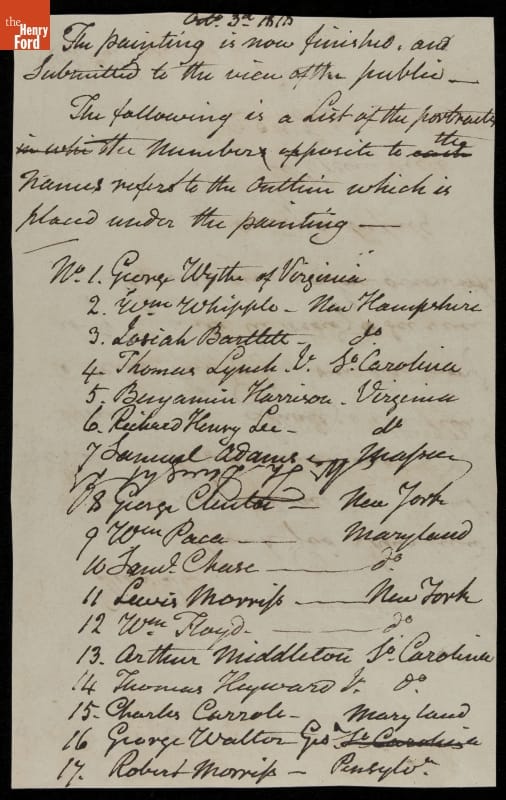 the
Henry
Ford
Octo. 3rd 1818
The painting is now finished, and
Submitted to the view of the public —
The following is a List of the portraits
in whi the Numbers opposite to each the
Names refers to the Outline which is
placed under the painting —
No. 1. George Wythe of Virginia
2. Wm Whipple — New Hampshire
3. Josiah Bartlett — do
4. Thomas Lynch Jr. So. Carolina
5. Benjamin Harrison . Virginia
6. Richard Henry Lee — do
7 Samuel Adams — Massa
8 George Clinton — New York
9 Wm Paca — Maryland
10 Saml. Chase — do
11 Lewis Morriss — New York
12 Wm Floyd — do
13. Arthur Middleton So. Carolina
14 Thomas Heyward Jr. Do.
15. Charles Carroll — Maryland
16 George Walton Geo So. Carolina
17. Robert Morriss — Pensylva.